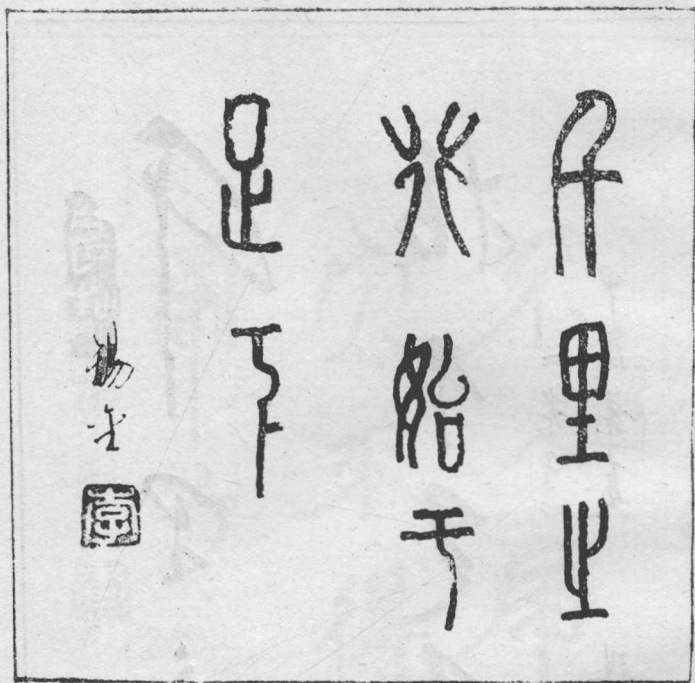 千里之
行始于
足下